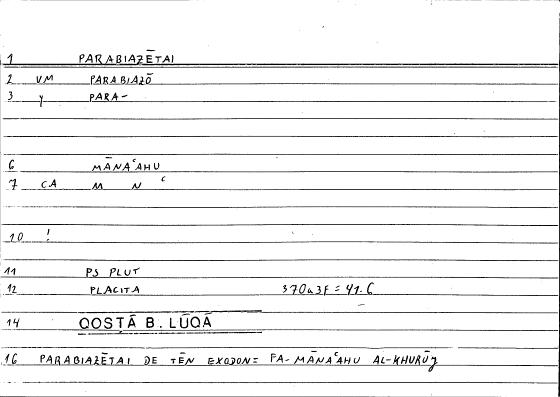 1 PARABIAZĒTAI
2 VM PARABIAZŌ
3 y PARA-
6 MĀNAʿAHU
7 CA M N ʿ
10 !
11 PS PLUT
12 PLACITA 370a3f = 41.6
14 QOSṬĀ B. LŪQĀ
16 PARABIAZĒTAI DE TĒN EXODON= FA-MĀNAʿAHU AL-KHURŪǧ